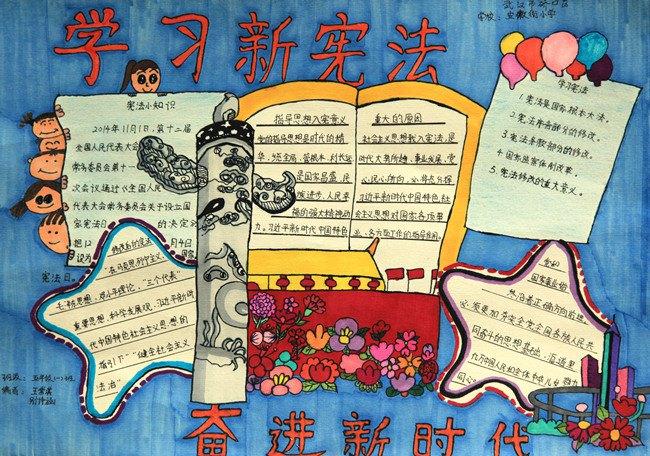 学习新宪法
学校：安徽街小学
宪法小知识
2014年11月1日，第十二届
全国人民代表大会
常务委员会第十一
次会议通过《全国人民
代表大会常务委员会关于设立国
家宪法日》的决定
把12月4日
设为国家
宪法日。
指导思想入宪意义
党的指导思想是时代的精
是国家昌盛、民
族进步、人民幸
福的强大精神动
力。习近平新时代中国特色
重大的原因
社会主义思想载入宪法，是
时代大势所趋、事业发展、党
心民心所向，必将充分发挥
习近平新时代中国特色社
会主义思想对国家各项事
业、各方面工作的指导作用。
学习宪法
1.宪法是国家根本大法。
2.宪法序言部分的修改。
3.宪法条款部分的修改。
4.国家监察体制改革。
5.宪法修改的重大意义。
修改后的宪法
在马克思列宁主义、
毛泽思想、邓小平理论，“三个代表”
重要思想，科学发展观，习近平新时
代中国特色社会主义思想的
指引下”“健全社会主义
法治”
国家事业始
终沿着正确方向前进，
必须更加夯实全党全国各族人民共
同奋斗的思想基础，汇造
班级：五年级（一）班
奋进新时代